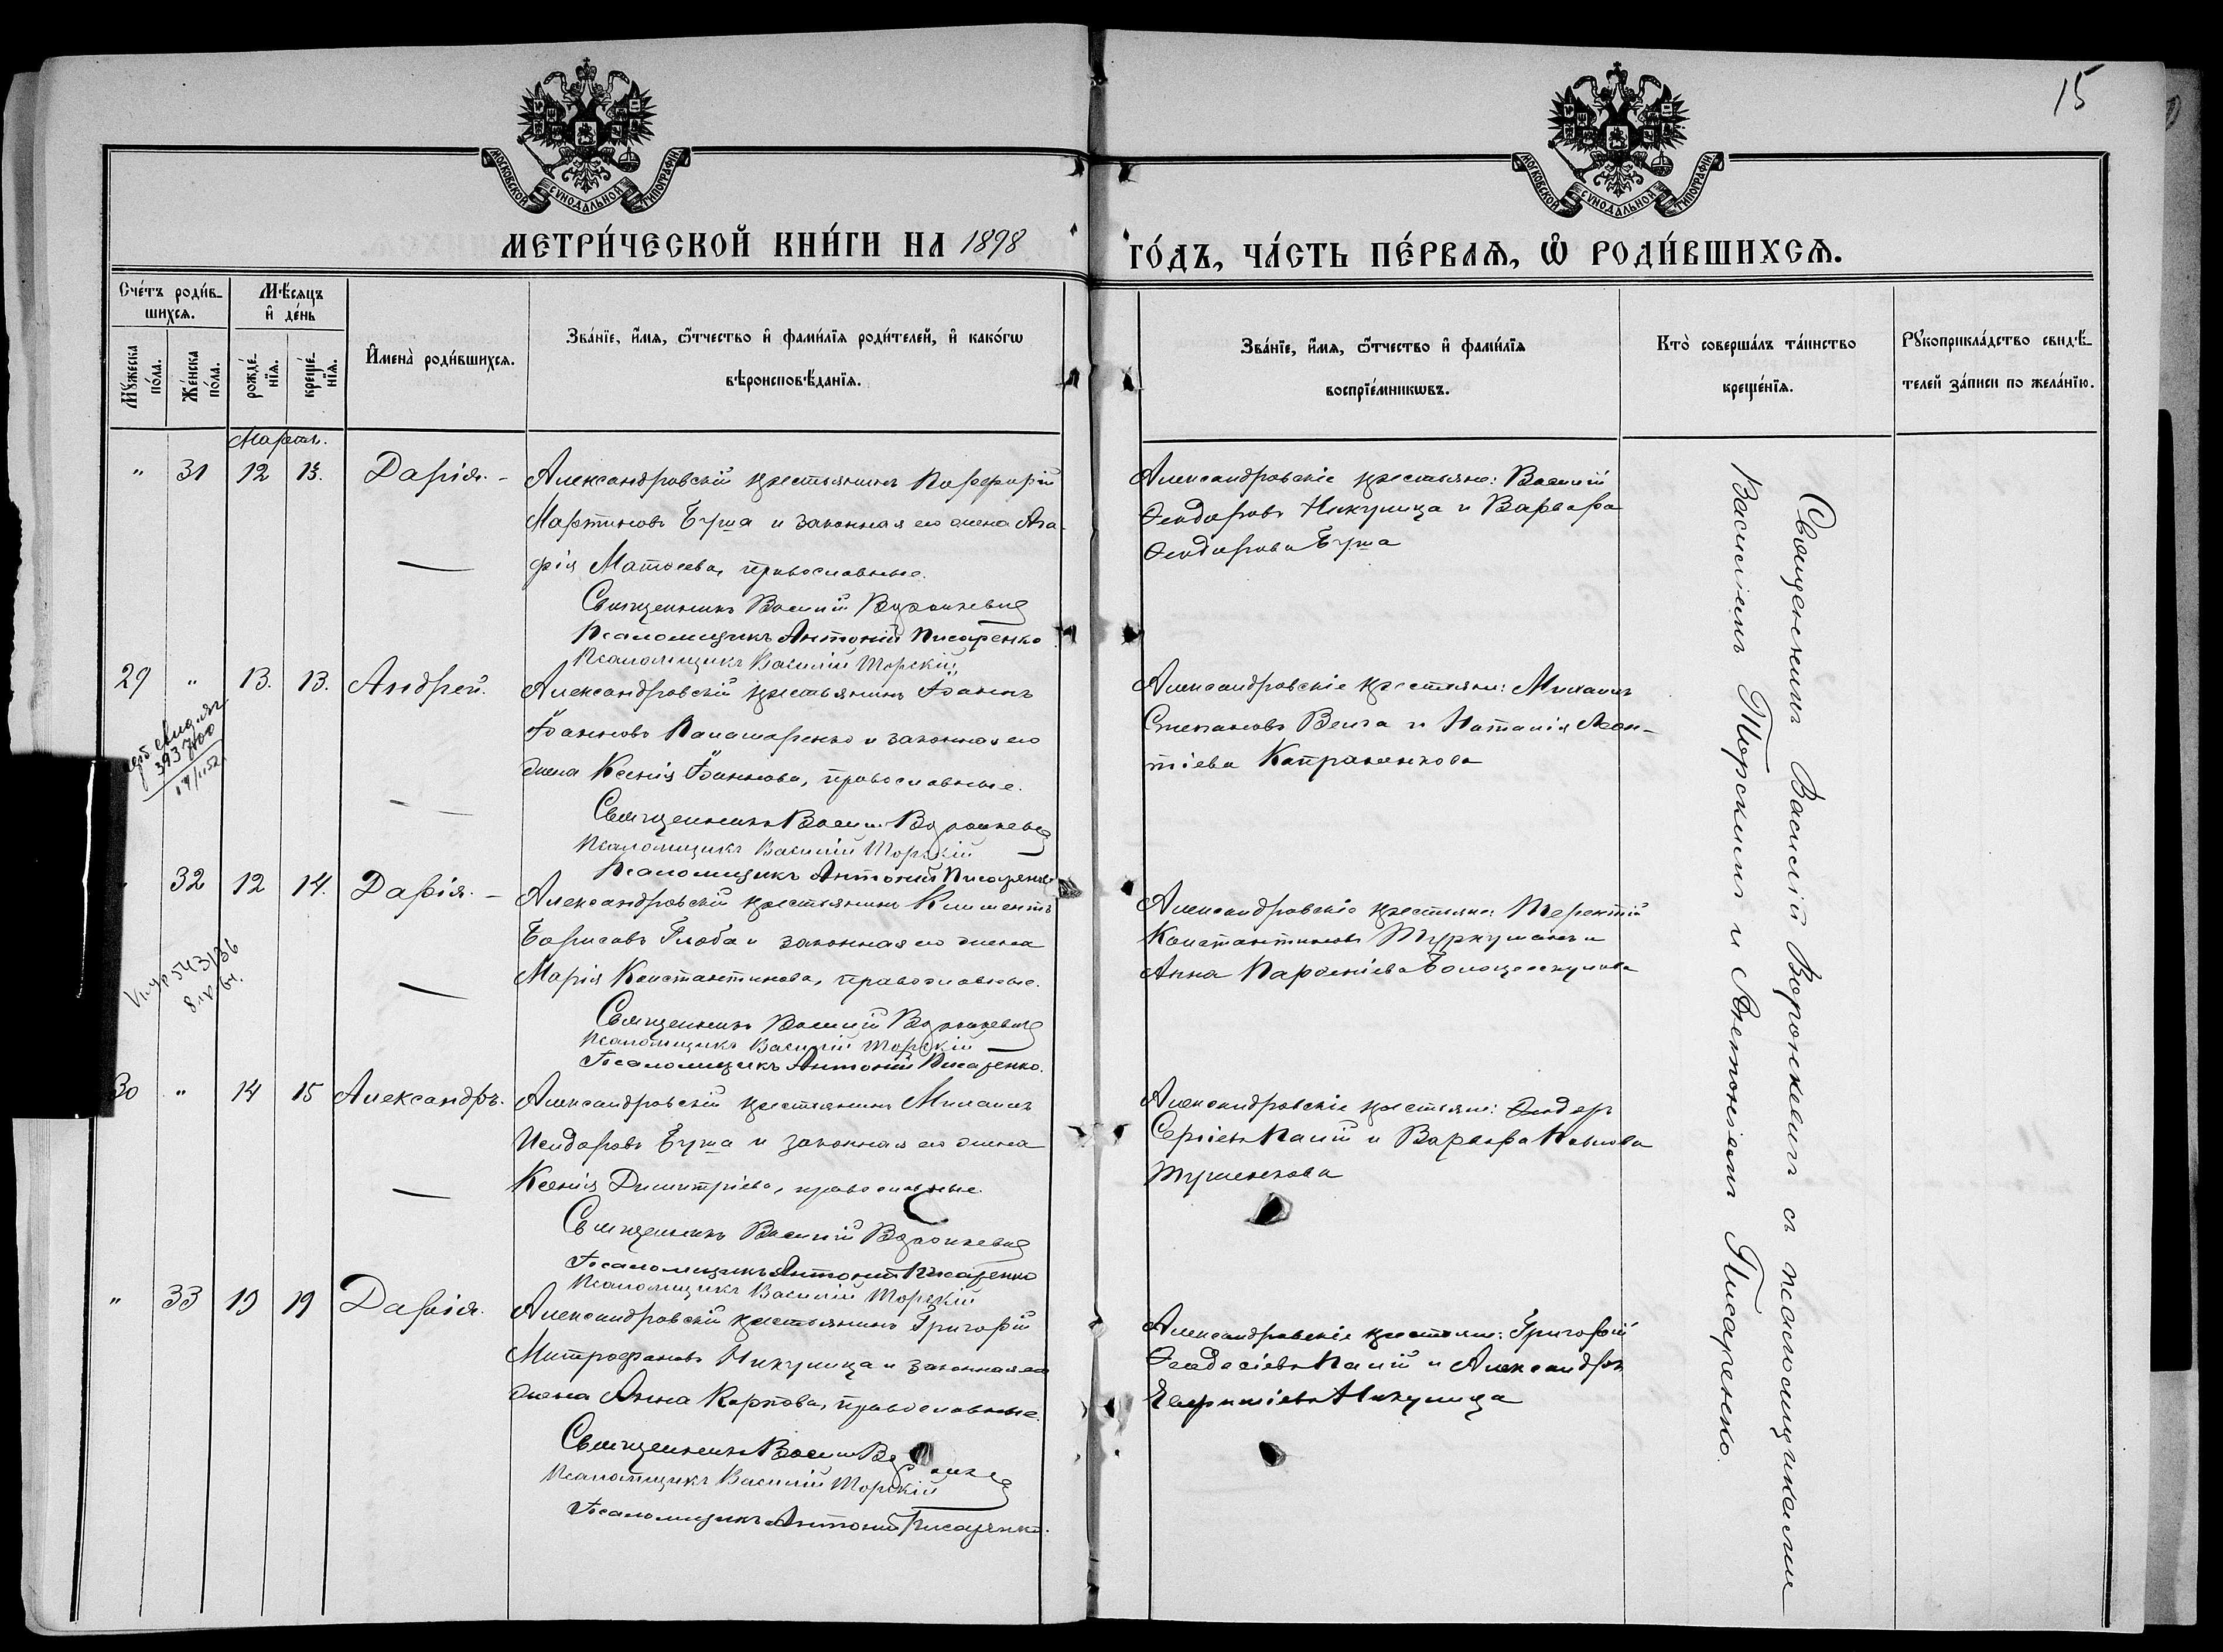 15
МОСКОВСКОЙ СѴНОДАЛЬНОЙ ТИПОГРАФІИ
МОСКОВСКОЙ СѴНОДАЛЬНОЙ ТИПОГРАФІИ
МЕТРИ́ЧЕСКОЙ КНИ́ГИ НА 1898
ГО́ДЪ, ЧА́СТЬ ПЕ́РВАѦ, Ѡ҆ РОДИ́ВШИХСѦ.
Сче́тъ роди́в-
шихсѧ.
Мꙋжеска по́ла.
Же́нска по́ла.
Мѣ́сѧцъ
и҆ де́нь
рожде́нїѧ.
креще́нїѧ.
И҆мена̀ роди́вшихсѧ.
Зва́нїе, и҆́мѧ, ѻ҆́тчество и҆ фами́лїѧ роди́телей, и҆ како́гѡ
вѣроисповѣ́данїѧ.
Зва́нїе, и҆́мѧ, ѻ҆́тчество и҆ фами́лїѧ
воспрїе́мникѡвъ.
Кто̀ соверша́лъ та́инство
креще́нїѧ.
Рꙋкоприкла́дство свидѣ́-
телей за́писи по жела́нїю.
Мартъ.
" 31 12 13. Дарія.
Александровскій крестьянинъ Порфирій
Мартиновъ Буша и законная его жена Ага-
фія Матѳеева, православные.
Священникъ Василій Воронкевич
Псаломщикъ Антоній Писаренко
Псаломщикъ Василій Торскій
Александровскіе крестьяне: Василій
Ѳеодоровъ Никулица и Варвара
Ѳеодорова Буша
29 " 13. 13. Андрей.
393700
Александровскій крестьянинъ Іоаннъ
Іоанновъ Паламаренко и законная его
жена Ксенія Іоаннова, православные.
Священникъ Васил Воронкевич
Псаломщикъ Василій Торскій
Псаломщикъ Антоній Писаренко
Александровскіе крестьяне: Михаилъ
Степановъ Велга и Наталія Леон-
тіева
32 12 14. Дарія.
543136
Александровскій крестьянинъ Климентъ
Борисовъ Глоба и законная его жена
Марія Константинова, православные.
Священникъ Василій Воронкевич
Псаломщикъ Василій Торскій
Псаломщикъ Антоній Писаренко.
Александровскіе крестьяне: Терентій
Константиновъ Туркуманъ и
Анна Парѳеніева
30 " 14 15 Александръ.
Александровскій крестьянинъ Михаилъ
Исидоровъ Буша и законная его жена
Ксенія Димитріева, православные.
Священникъ Василій Воронкевич
Псаломщикъ Антоній Писаренко
Псаломщикъ Василій Торскій
Александровскіе крестьяне: Ѳеодоръ
Сергіевъ Палій и Варвара Павлова
" 33 19 19 Дарія.
Александровскій крестьянинъ Григорій
Митрофановъ Никулица и законная его
жена Анна Карпова, православные.
Священникъ Васил
Псаломщикъ Василій Торскій
Псаломщикъ Антоній Писаренко.
Александровскіе крестьяне: Григорій
Ѳеодосіевъ Палій и Александра
Никулица
Священникъ Василій Воронкевич съ псаломщиками
Василіемъ Торскимъ и Антоніемъ Писаренко.